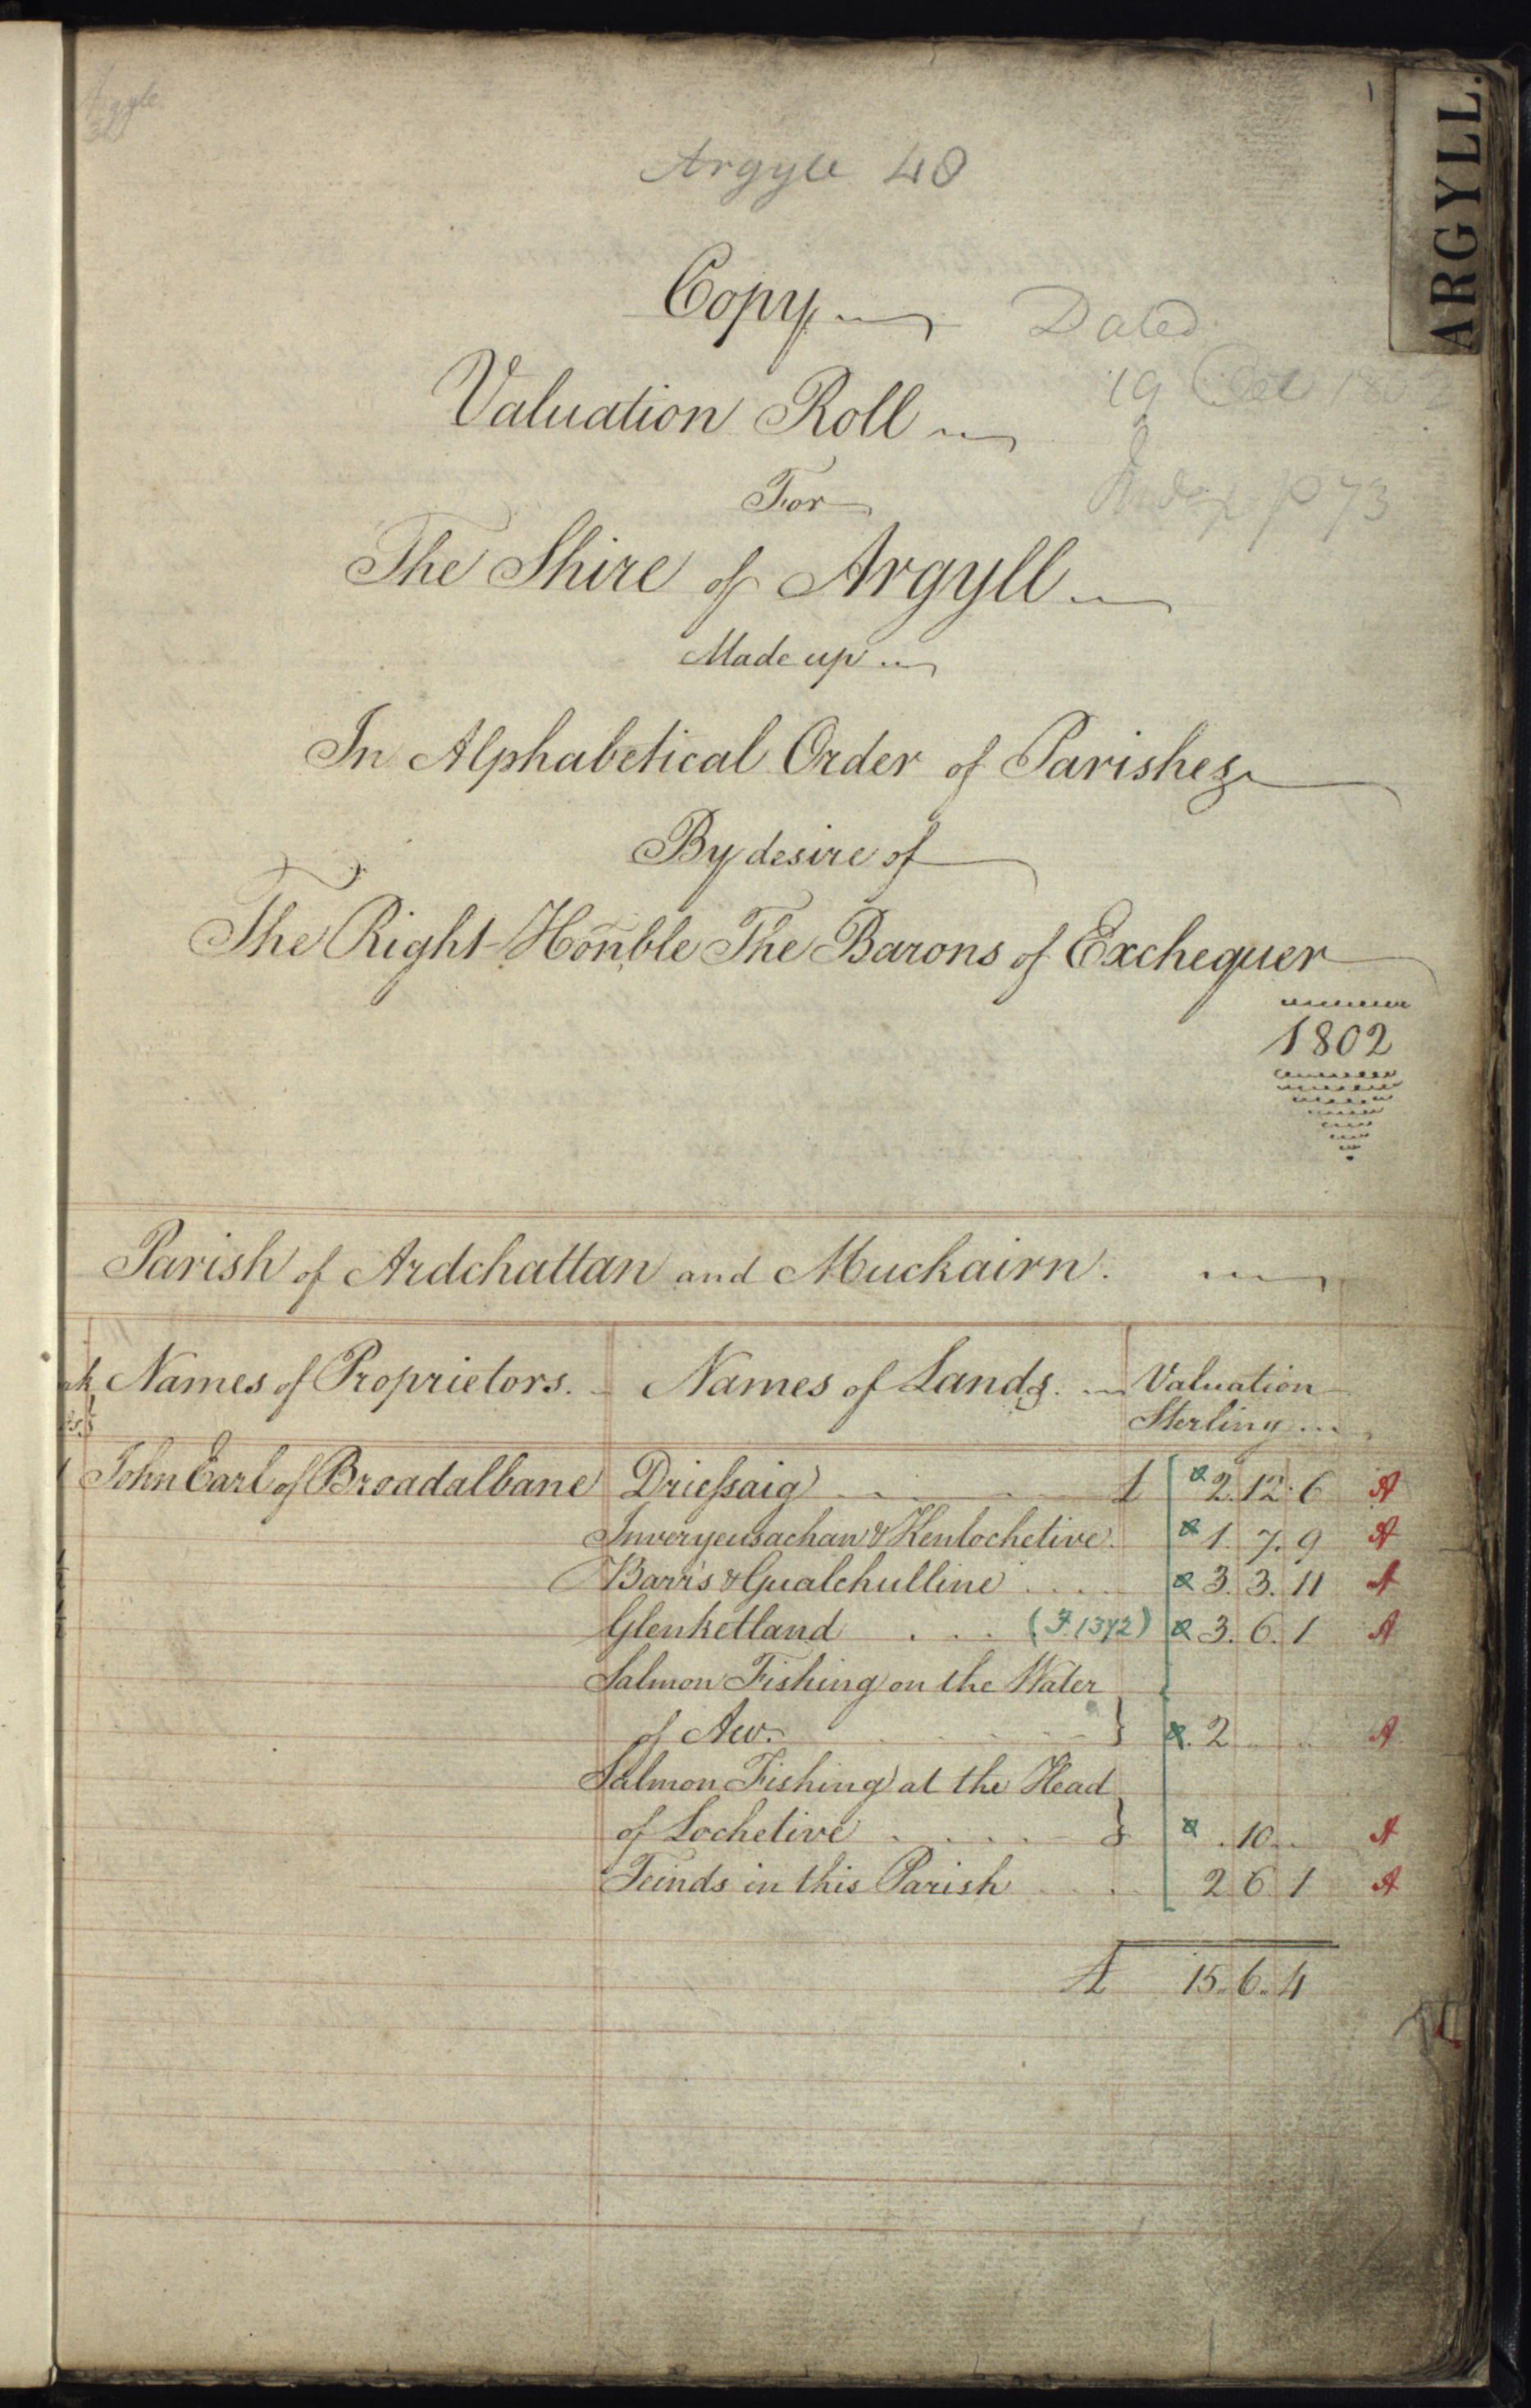 Argyle
ARGYLL.
1
Argyle 48
Copy
Dated
19 Oct 1802
Valuation Roll
Index p 73
For
The Shire of Argyll
Made up
In Alphabetical Order of Parishes
By desire of
The Right Honble The Barons of Exchequer
1802
Parish of Ardchattan and Muckairn.
Names of Proprietors. Names of Lands. Valuation
Sterling
John Earl of Broadalbane Driessaig £ 2. 12. 6 A
& Kenlochetive. 1. 7. 9 A
Barrs & Gualchulline 3. 3. 11 A
Glenketland (F. 1372) 3. 6. 1 A
Salmon Fishing on the Water
of Aw. } 2 A
Salmon Fishing at the Head
of Lochetive } . 10 A
Teinds in this Parish 2 6 1 A
£ 15. 6. 4